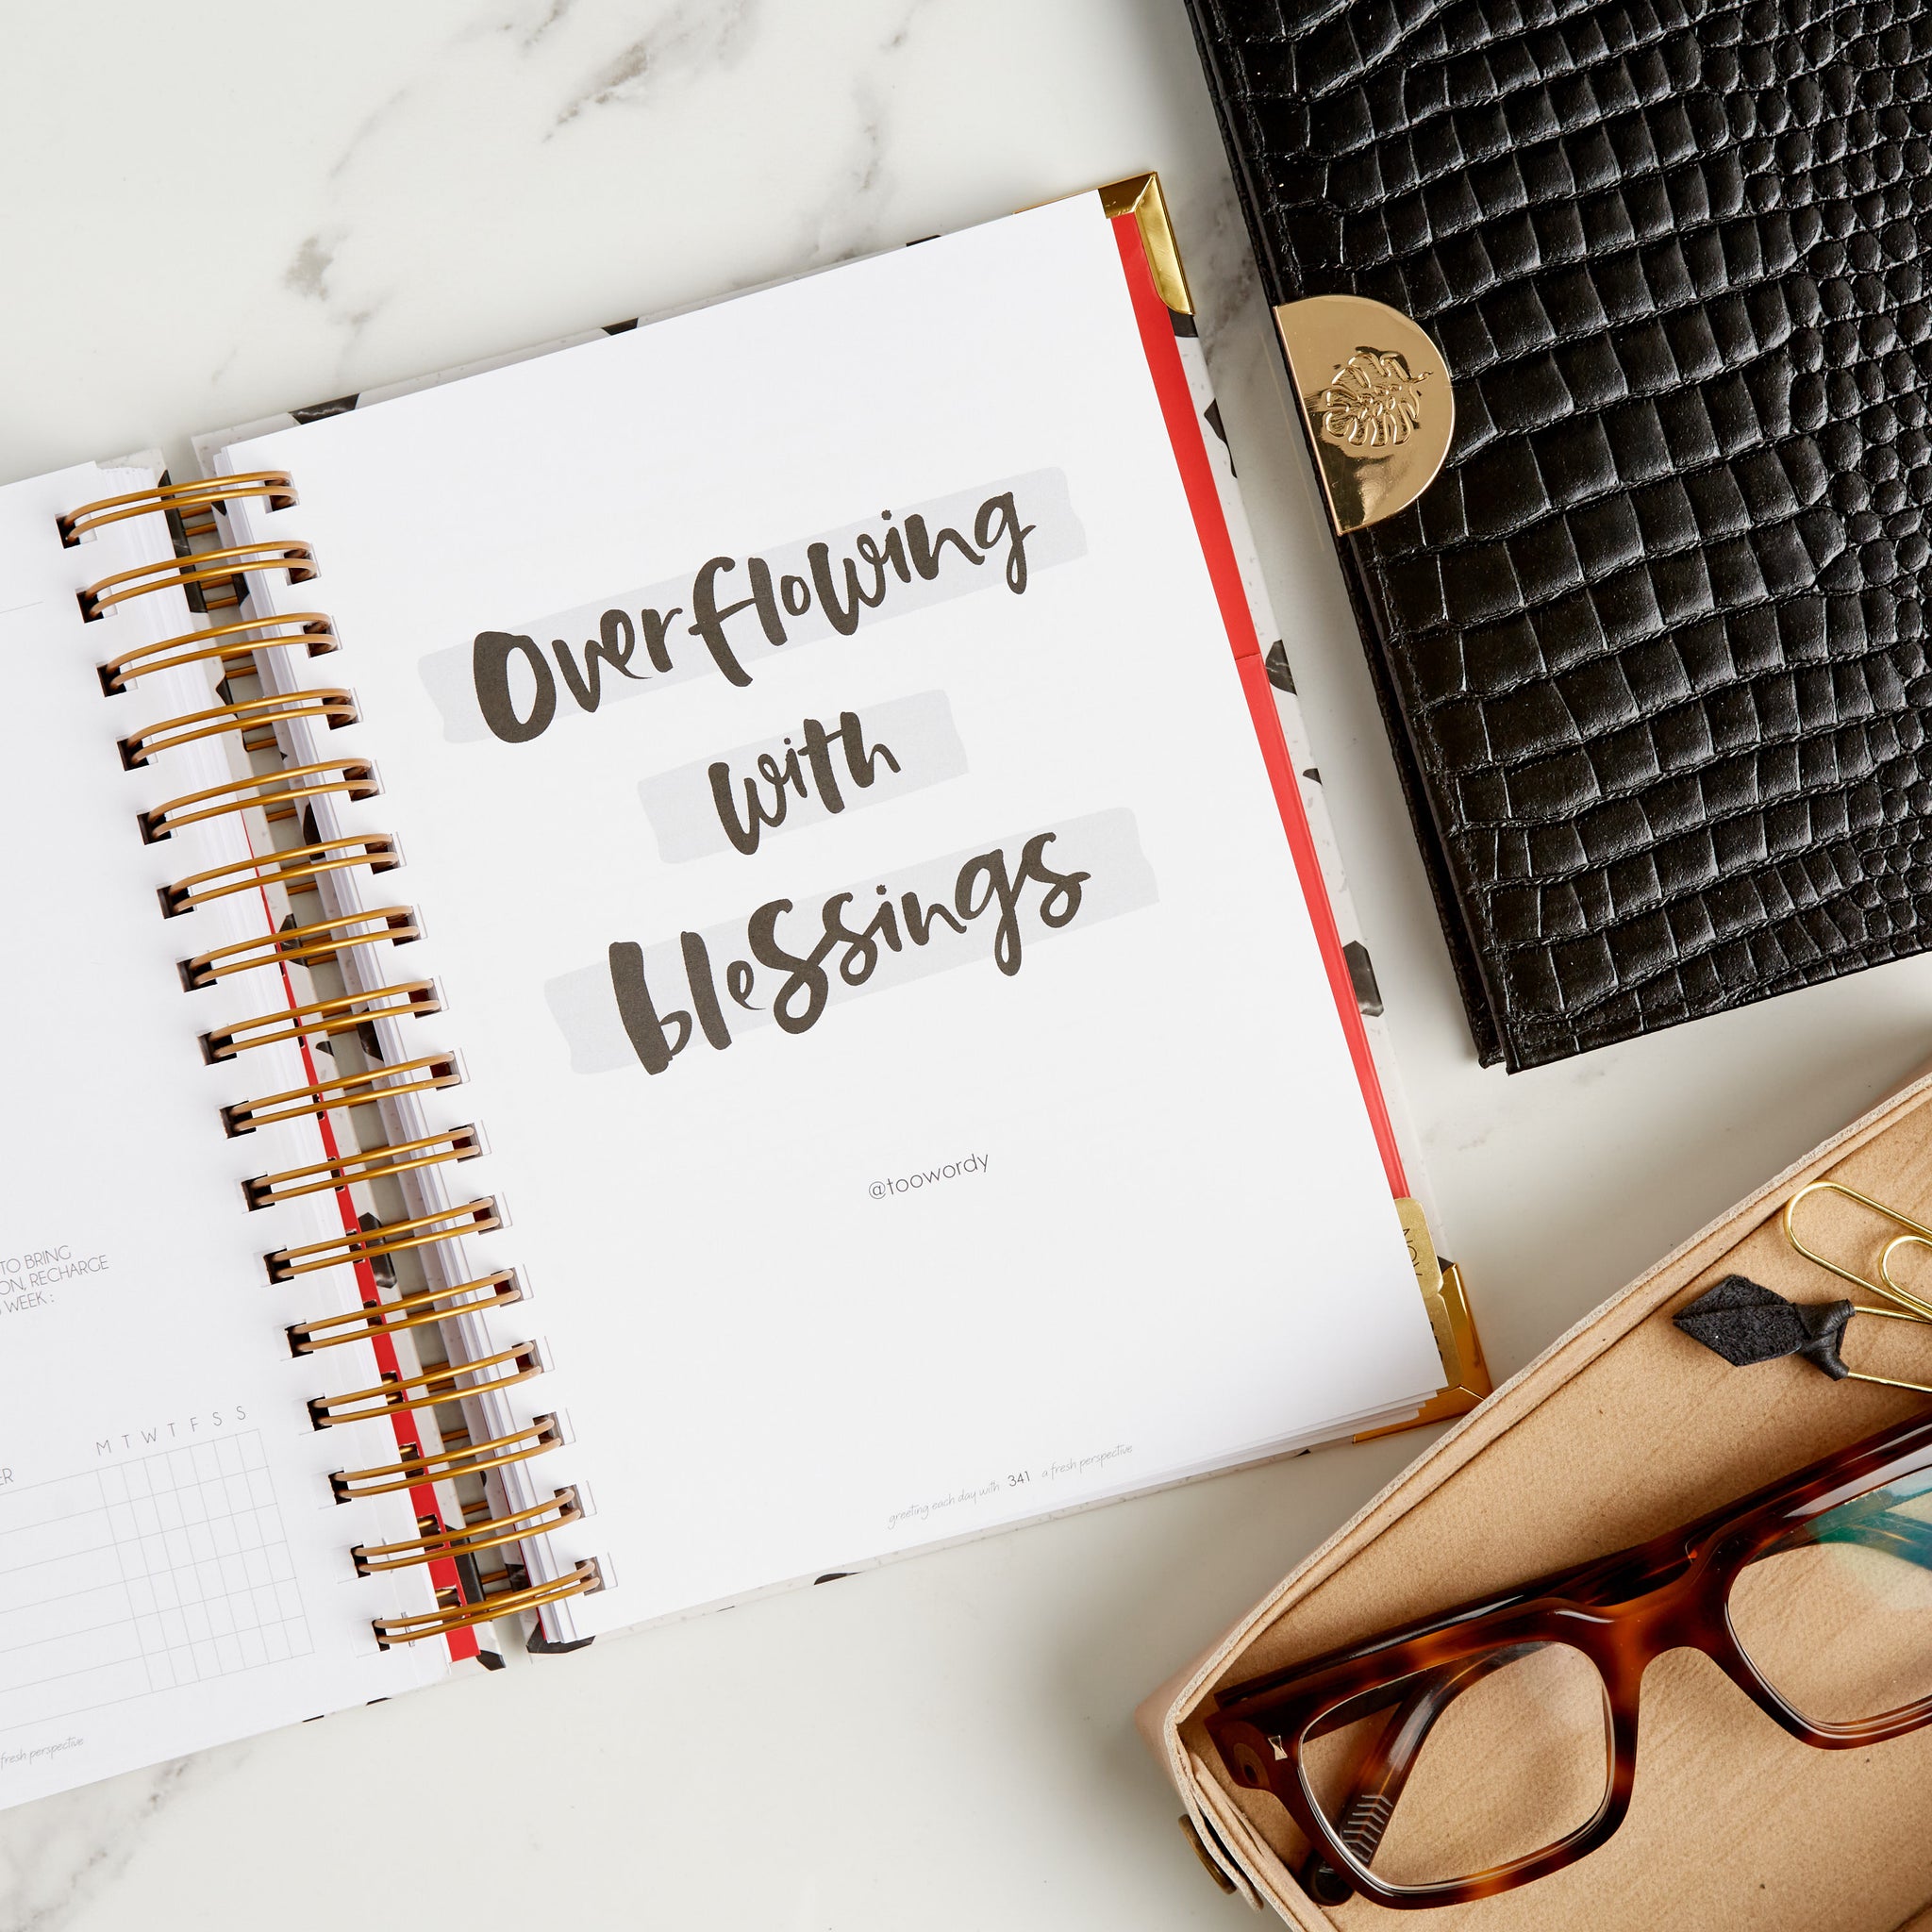 TO BRING
ON, RECHARGE
WEEK:
M T W T F S S
ER
fresh perspective
Overflowing
with
blessings
@toowordy
NOV
greeting each day with 341 a fresh perspective